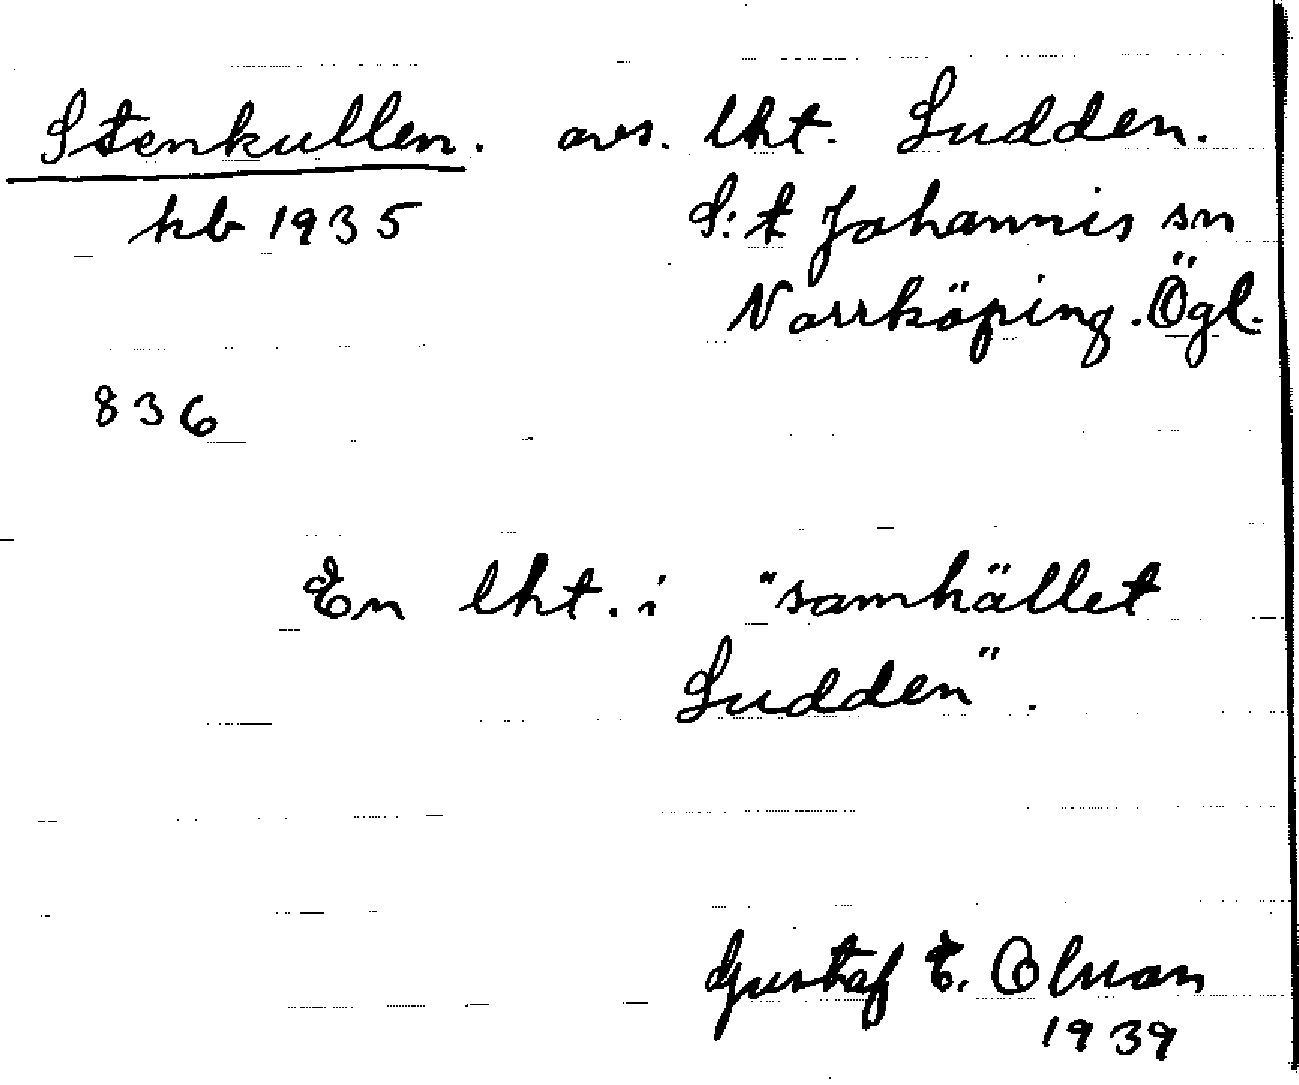 Stenkullen. avs. lht. Sudden.
kb 1935 S:t Johannis sn
Norrköping. Ögl.
836
En lht. i "samhället
Sudden".
Gustaf E. Olsson
1939